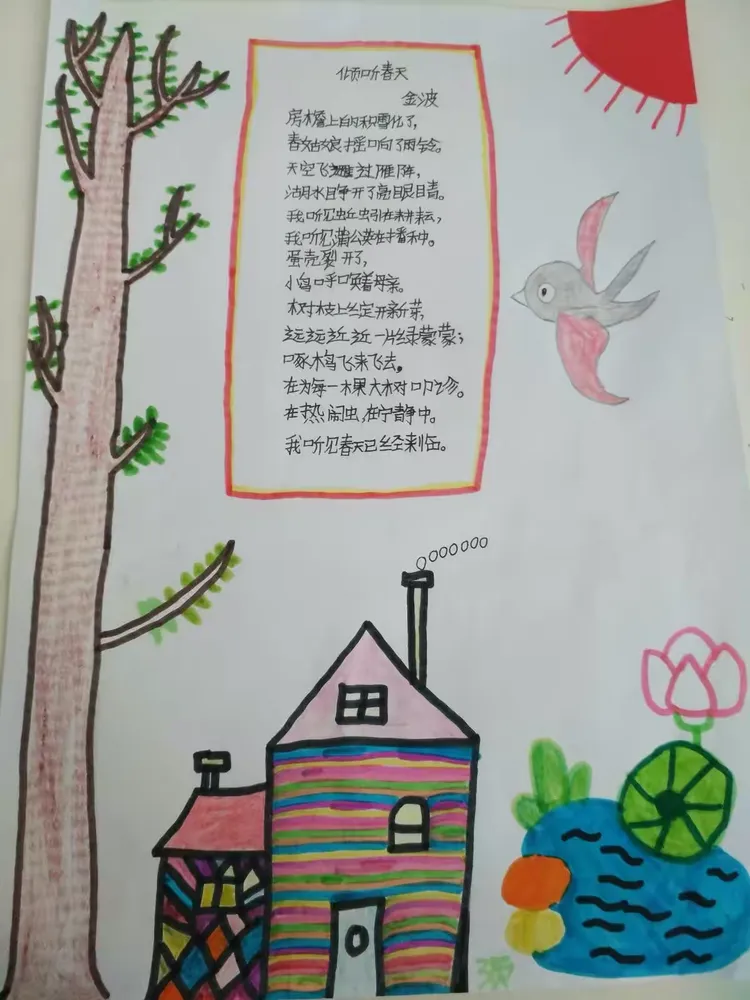 倾听春天
金波
房檐上的积雪化了,
春姑娘摇响了雨铃。
天空飞过雁阵,
湖水睁开了亮眼睛。
我听见蚯蚓在耕耘,
我听见蒲公英在播种。
蛋壳裂开了,
小鸟呼唤着母亲。
树枝上绽开新芽,
远远近近一片绿蒙蒙;
啄木鸟飞来飞去。
在为每一棵大树叩诊。
在热闹虫,在宁静中。
我听见春天已经来临。